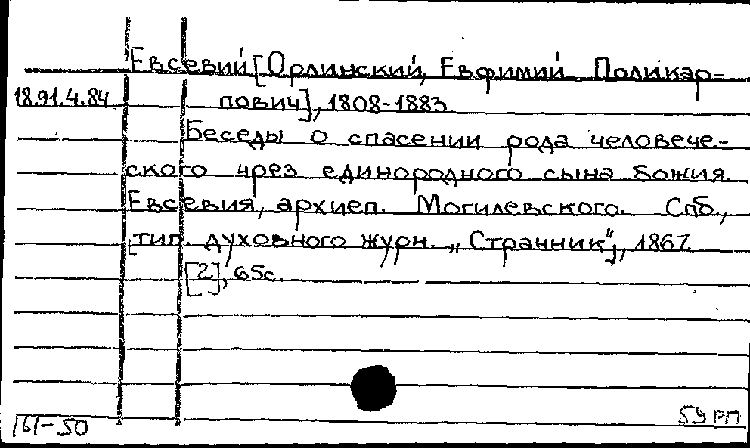 Евсевий [Орлинский, Евфимий Поликар-
18.91.4.84 пович], 1808-1883.
Беседы о спасении рода человече-
ского чрез единородного сына божия
Евсевия, архиеп. Могилевского. Спб.,
[тип. духовного журн. „Странник“], 1867.
[2], 65с.
161-50 59 РП